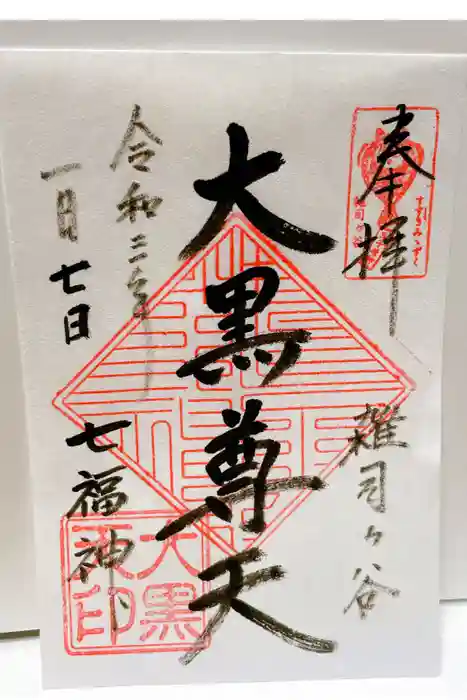 奉拝
雑司ヶ谷
大黒尊天
令和三年
一月七日
七福神
大黒
天印